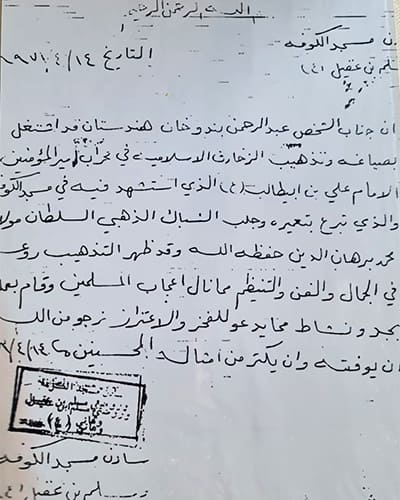 بسم الله الرحمن الرحيم
سادن مسجد الكوفة
مسلم بن عقيل (ع)
التاريخ ١٤/٤/١٩٧١
ان جناب الشخص عبد الرحمن بندوخان هندستان قد اشتغل
بصياغه وتذهيب الزخارف الاسلامية في محراب أمير المؤمنين
الامام علي بن ابيطالب (ع) الذي استشهد فيه في مسجد الكوفة
والذي تبرع بتعميره وجلب الشباك الذهبي السلطان مولانا
محمد برهان الدين حفظه الله وقد ظهر التذهيب روعه
في الجمال والفن والتنظيم مما نال اعجاب المسلمين وقام بعمله
بجد ونشاط مما يدعو للفخر والاعتزاز نرجو من الله
ان يوفقه وان يكثر من امثاله المحسنين
سادن مسجد الكوفة
مسلم بن عقيل
سادن مسجد الكوفة
مسلم بن عقيل (ع)